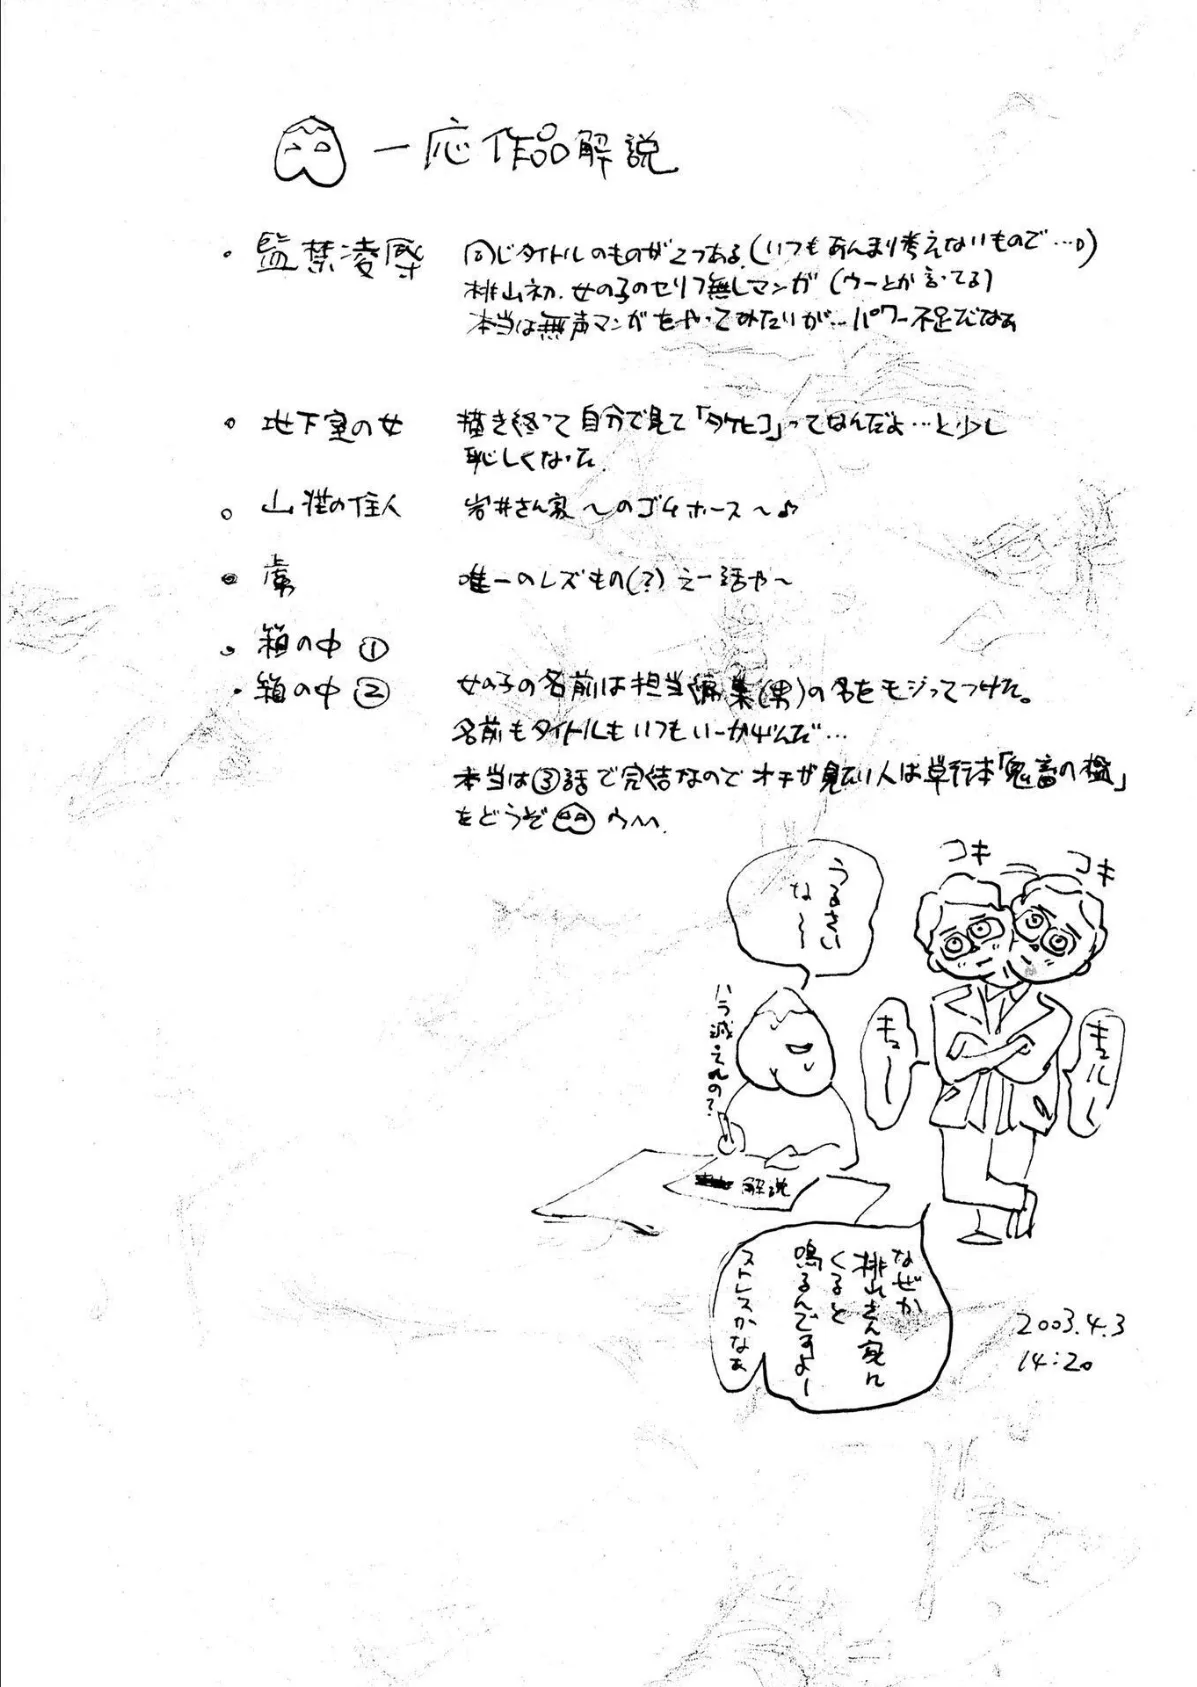 一応作品解説
・監禁凌辱 同じタイトルのものが2つある。(いつもあんまり考えないもので…)
桃山初、女の子のセリフ無しマンガ(ウーとか言ってる)
本当は無声マンガをやってみたいが…パワー不足だなぁ
・地下室の女 描き終って自分で見て「タケヒコ」ってなんだよ…と少し
恥しくなった。
・山荘の住人 岩井さん家〜のゴムホース〜♪
・虜 唯一のレズもの(?)えー話や〜
・箱の中①
・箱の中②
女の子の名前は担当編集(男)の名をモジってつけた。
名前もタイトルもいつもいーかげんだ…
本当は③話で完結なのでオチが見たい人は単行本「鬼畜の檻」
をどうぞ
コキ
コキ
うるさい
な〜〜
ハラ減ってんの?
キュー
キュルル
解説
なぜか
桃山さん家に
くると
鳴るんですよー
ストレスかなぁ
2003.4.3
14:20